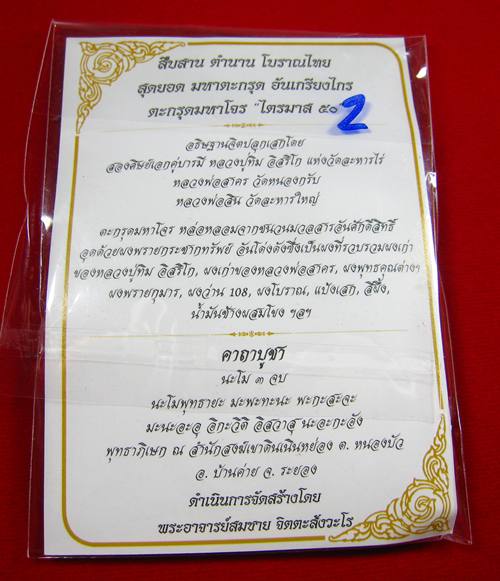 สืบสาน ตำนาน โบราณไทย
สุดยอด มหาตะกรุด อันเกรียงไกร
ตะกรุดมหาโจร "ไตรมาส ๕๐ 2
อธิษฐานจิตปลุกเสกโดย
สองศิษย์เอกคู่บารมี หลวงปู่ทิม อิสริโก แห่งวัดละหารไร่
หลวงพ่อสาคร วัดหนองกรับ
หลวงพ่อสิน วัดละหารใหญ่
ตะกรุดมหาโจร หล่อหลอมจากชนวนมวลสารอันศักดิ์สิทธิ์
อุดด้วยผงพรายกระชากทรัพย์ อันโด่งดังซึ่งเป็นผงที่รวบรวมผงเก่า
ของหลวงปู่ทิม อิสริโก, ผงเก่าของหลวงพ่อสาคร, ผงพุทธคุณต่างๆ
ผงพรายกุมาร, ผงว่าน 108, ผงโบราณ, แป้งเสก, สีผึ้ง,
น้ำมันช้างผสมโขง ฯลฯ
คาถาบูชา
นะโม ๓ จบ
นะโมพุทธายะ มะพะทะนะ พะกะสะจะ
มะนะอะอุ อิกะวิติ อิสวาสุ นะอะกะอัง
พุทธาภิเษก ณ สำนักสงฆ์เขาดินเนินหย่อง ต. หนองบัว
อ. บ้านค่าย จ. ระยอง
ดำเนินการจัดสร้างโดย
พระอาจารย์สมชาย จิตตะสังวะโร